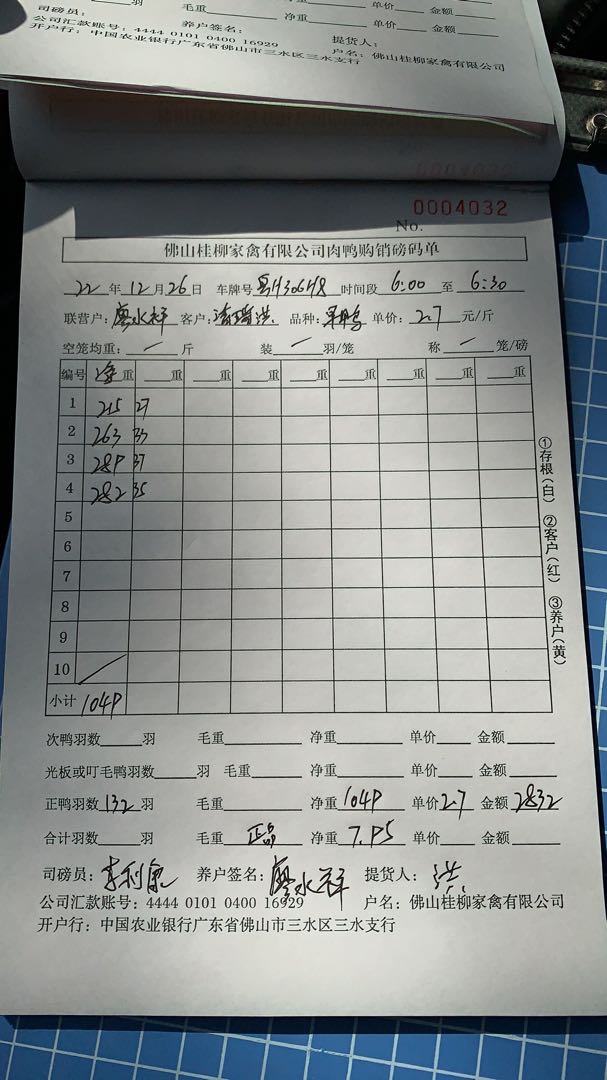 羽 净重 单价 金额
司磅员： 养户签名： 提货人：
公司汇款账号：4444 0101 0400 16929 户名：佛山桂柳家禽有限公司
开户行：中国农业银行广东省佛山市三水区三水支行
0004032
No. 0004032
佛山桂柳家禽有限公司肉鸭购销磅码单
22年12月26日 车牌号 时间段 6:00 至 6:30
联营户：廖水祥 客户： 品种： 单价：2.7元/斤
空笼均重：/斤 装/羽/笼 称/笼/磅
编号 净重 重 重 重 重 重 重 重 重
1 215 27
2 263 33
3 289 37
4 282 35
5
6
7
8
9
10
小计 1049
①存根(白) ②客户(红) ③养户(黄)
次鸭羽数 羽 毛重 净重 单价 金额
光板或叮毛鸭羽数 羽 毛重 净重 单价 金额
正鸭羽数132羽 毛重 净重1049 单价2.7 金额2832
合计羽数 羽 毛重 正品 净重7.95 单价 金额
司磅员：李利康 养户签名：廖水祥 提货人：洪
公司汇款账号：4444 0101 0400 16929 户名：佛山桂柳家禽有限公司
开户行：中国农业银行广东省佛山市三水区三水支行